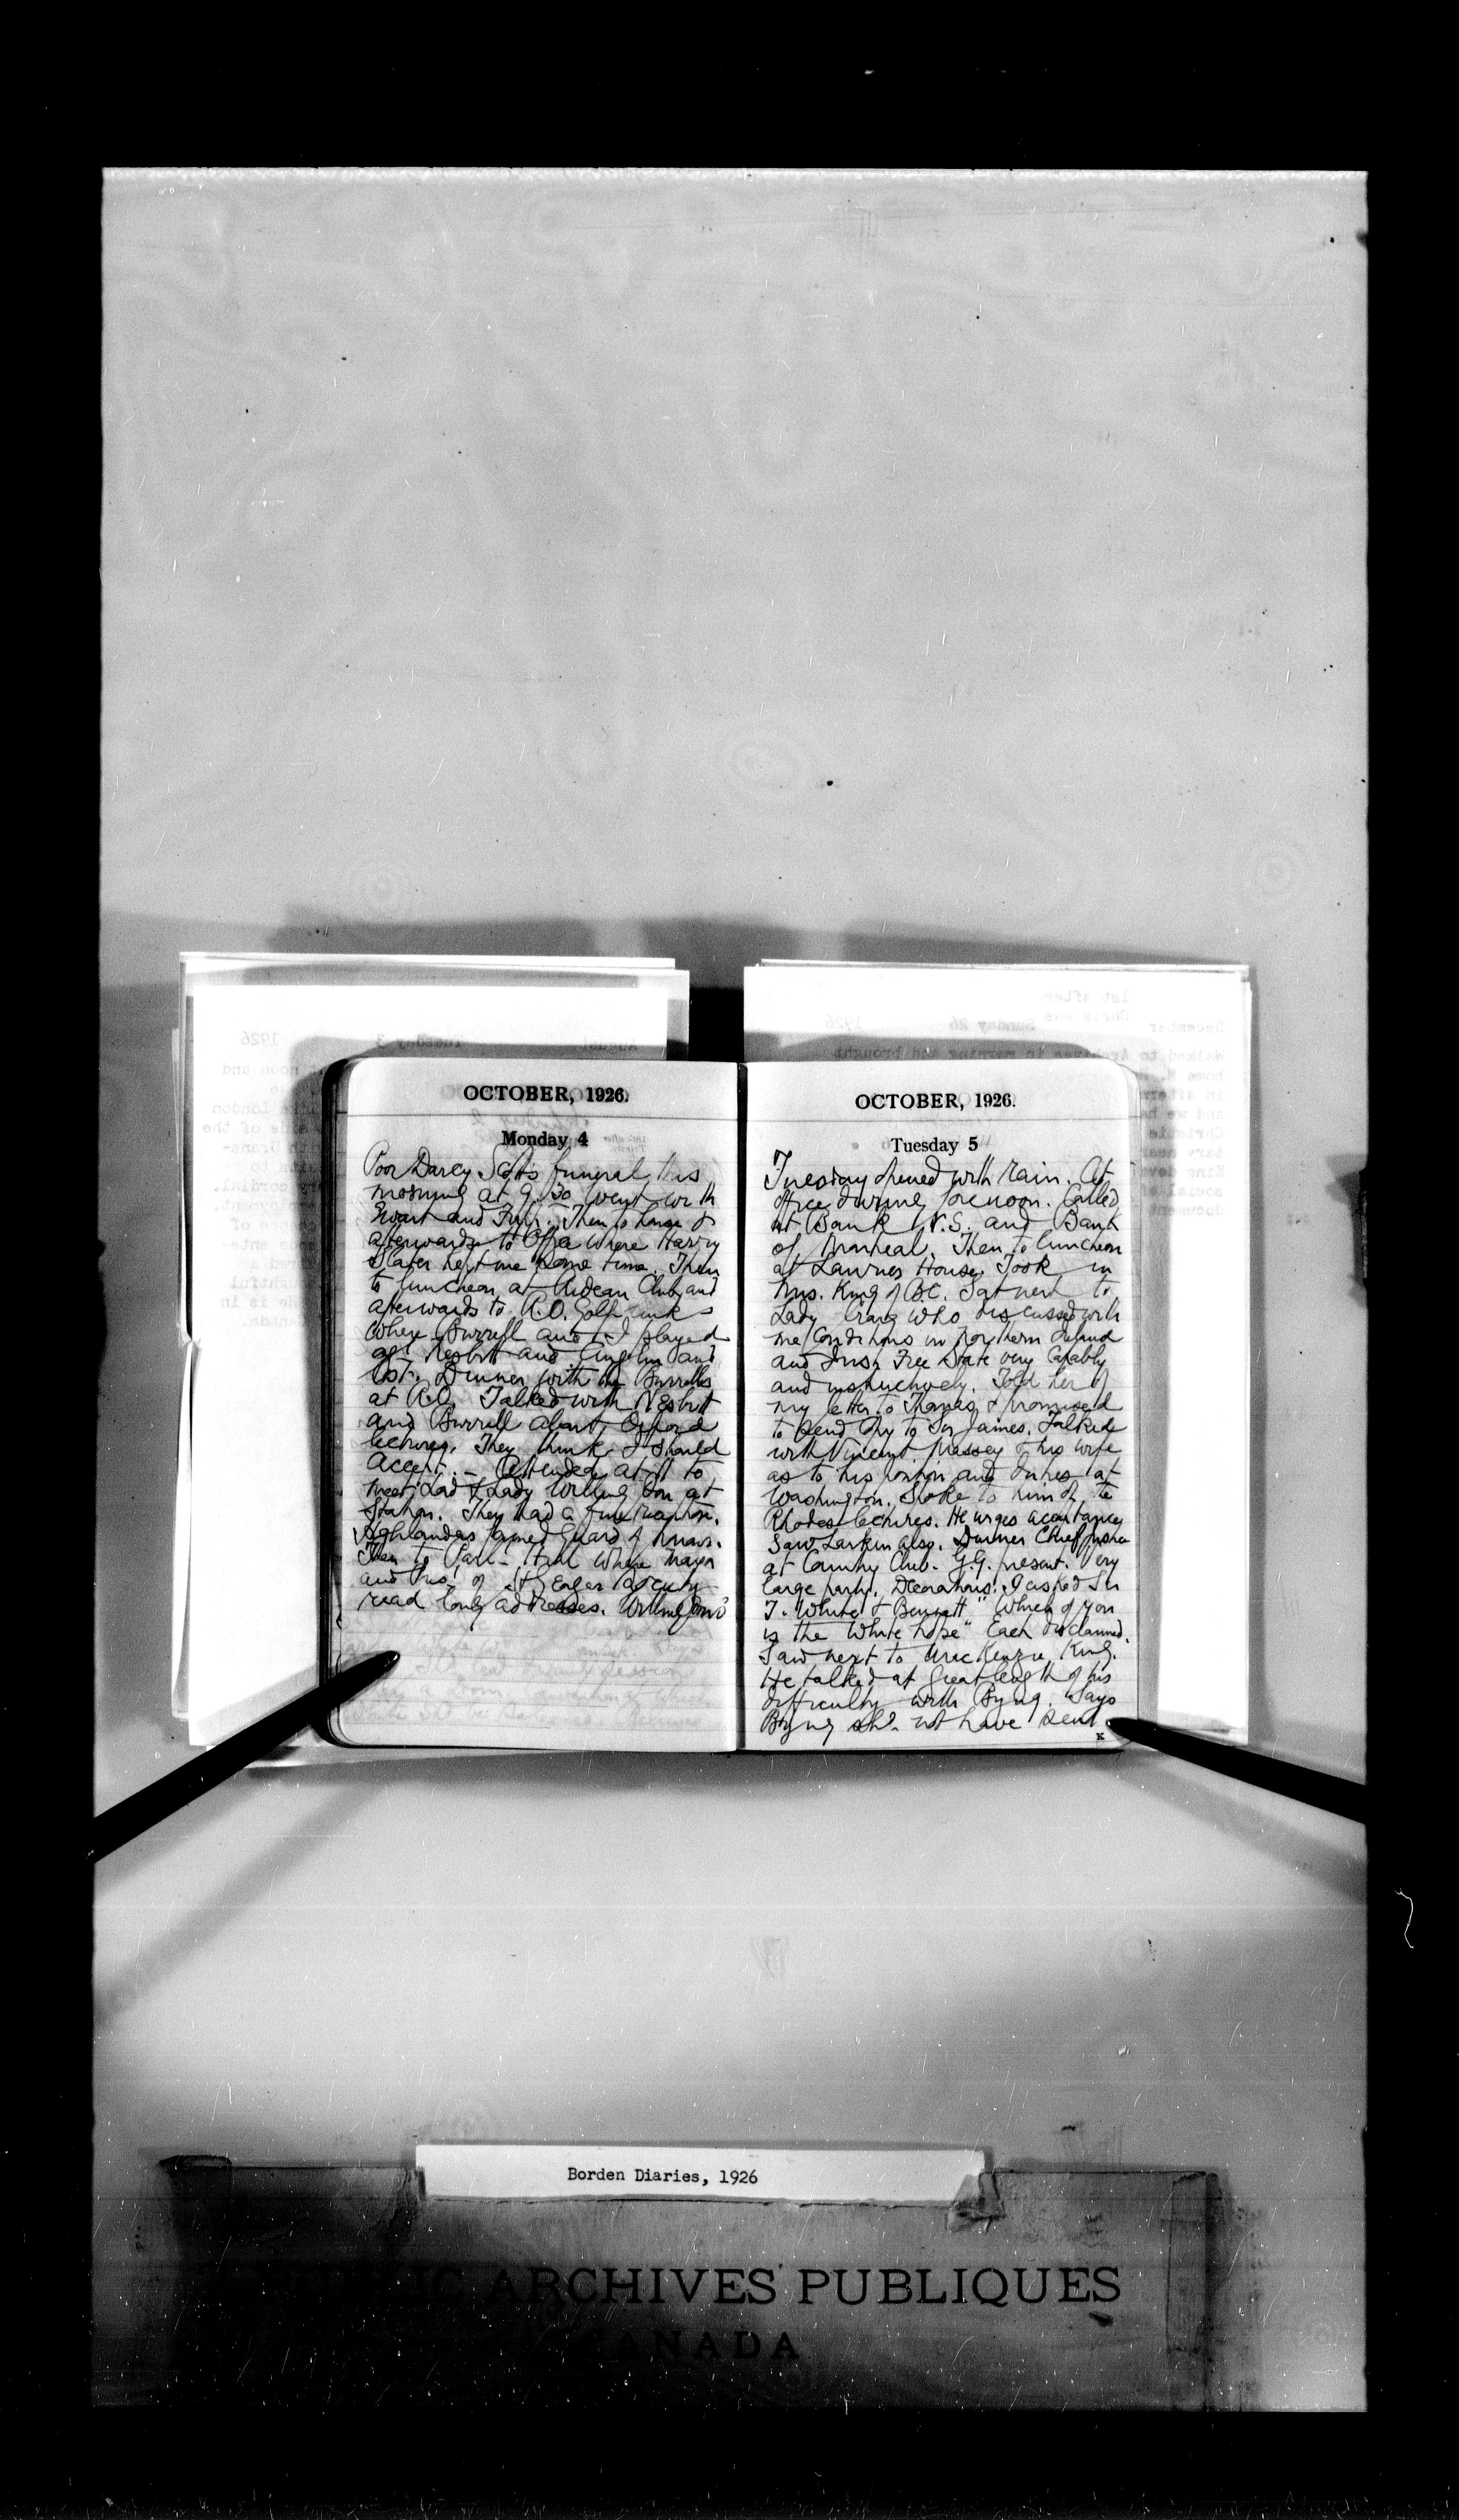 OCTOBER, 1926.
Monday 4
Poor Darcy Scott's funeral this
morning at 9.30. Went with
Ewart and Then to house &
afterwards to Office where Harry
kept me some time. Then
to luncheon at Rideau Club and
afterwards to R.O. Golf Links
where Burrell and I played
agt. Nesbitt and Anglin and
lost. Dinner with the Burrells
at R.O. Talked with Nesbitt
and Burrell about Oxford
lectures. They think I should
accept. – Attended at to
meet Lord & Lady Willingdon at
Station. They had a fine reception.
Highlanders formed Guard of Honor.
Then to Parl– Hill where Mayor
and Pres. of St George's Society
read long addresses. Willingdon's
OCTOBER, 1926.
Tuesday 5
Tuesday opened with rain. At
office during forenoon. Called
at Bank N.S. and Bank
of Montreal. Then to luncheon
at Laurier House. Took in
Mrs. King of BC. Sat next to
Lady Craig who discussed with
me conditions in Northern Ireland
and Irish Free State very capably
and instructively. Told her of
my letter to Thomas & promised
to send copy to Sir James. Talked
with Vincent Massey & his wife
as to his position and duties at
Washington. Spoke to him of the
Rhodes lectures. He urges acceptance
Saw Larkin also. Dinner Chief Justice
at Country Club. G.G. present. Very
large party. Decorations. I asked Sir
T. White & Bennett "Which of you
is the White hope" Each disclaimed.
Saw next to MacKenzie King.
He talked at great length of his
difficulty with Byng. Says
Byng shd. not have sent
K
Borden Diaries, 1926
PUBLIC ARCHIVES PUBLIQUES
CANADA